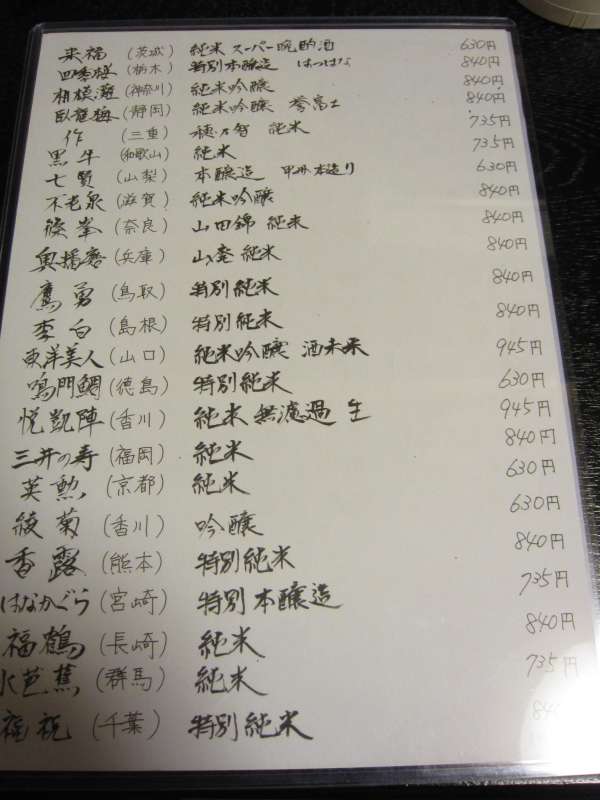 来福 (茨城) 純米 スーパー晩酌酒 630円
四季桜 (栃木) 特別本醸造 はつはな 840円
相模灘 (神奈川) 純米吟醸 840円
臥龍梅 (静岡) 純米吟醸 誉富士 840円
作 (三重) 穂乃智 純米 735円
黒牛 (和歌山) 純米 735円
七賢 (山梨) 本醸造 甲州本造り 630円
不老泉 (滋賀) 純米吟醸 840円
篠峯 (奈良) 山田錦 純米 840円
奥播磨 (兵庫) 山廃純米 840円
鷹勇 (鳥取) 特別純米 840円
李白 (島根) 特別純米 840円
東洋美人 (山口) 純米吟醸 酒未来 945円
鳴門鯛 (徳島) 特別純米 630円
悦凱陣 (香川) 純米 無濾過 生 945円
三井の寿 (福岡) 純米 840円
英勲 (京都) 純米 630円
綾菊 (香川) 吟醸 630円
香露 (熊本) 特別純米 840円
はなかぐら (宮崎) 特別本醸造 735円
福鶴 (長崎) 純米 840円
水芭蕉 (群馬) 純米 735円
福祝 (千葉) 特別純米